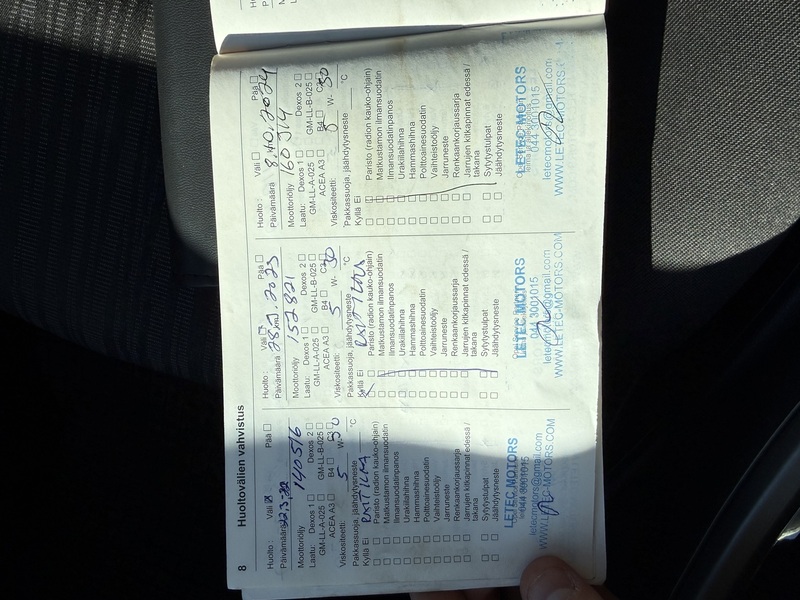 8 Huoltovälien vahvistus
Huolto: Väli ☒ Pää ☐
Päivämäärä 22.3-22
Moottoriöljy 140516
Laatu: Dexos 1 ☐ Dexos 2 ☐
GM-LL-A-025 ☐ GM-LL-B-025 ☐
ACEA A3 ☐ B4 ☐ C3
Viskositeetti: 5 W- 30
Pakkassuoja, jäähdytysneste °C
Kyllä Ei
☐ ☐ Paristo (radion kauko-ohjain)
☐ ☐ Matkustamon ilmansuodatin
☐ ☐ Ilmansuodatinpanos
☐ ☐ Urakiilahihna
☐ ☐ Hammashihna
☐ ☐ Polttoainesuodatin
☐ ☐ Vaihteistoöljy
☐ ☐ Jarruneste
☐ ☐ Renkaankorjaussarja
☐ ☐ Jarrujen kitkapinnat edessä /
takana
☐ ☐ Sytytystulpat
☐ ☐ Jäähdytysneste
LETEC MOTORS
044 3001015
letecmotors@gmail.com
WWW.LETEC-MOTORS.COM
Huolto: Väli Pää ☐
Päivämäärä 2023
Moottoriöljy 152821
Laatu: Dexos 1 ☐ Dexos 2 ☐
GM-LL-A-025 ☐ GM-LL-B-025 ☐
ACEA A3 ☐ B4 ☐ C3
Viskositeetti: 5 W- 30
Pakkassuoja, jäähdytysneste °C
Kyllä Ei
☐ ☐ Paristo (radion kauko-ohjain)
☐ ☐ Matkustamon ilmansuodatin
☐ ☐ Ilmansuodatinpanos
☐ ☐ Urakiilahihna
☐ ☐ Hammashihna
☐ ☐ Polttoainesuodatin
☐ ☐ Vaihteistoöljy
☐ ☐ Jarruneste
☐ ☐ Renkaankorjaussarja
☐ ☐ Jarrujen kitkapinnat edessä /
takana
☐ ☐ Sytytystulpat
☐ ☐ Jäähdytysneste
LETEC MOTORS
044 3001015
letecmotors@gmail.com
WWW.LETEC-MOTORS.COM
Huolto: Väli ☐ Pää
Päivämäärä 8.10.2024
Moottoriöljy 160514
Laatu: Dexos 1 ☐ Dexos 2 ☐
GM-LL-A-025 ☐ GM-LL-B-025 ☐
ACEA A3 ☐ B4 ☐ C3
Viskositeetti: 0 W- 30
Pakkassuoja, jäähdytysneste °C
Kyllä Ei
☐ ☐ Paristo (radion kauko-ohjain)
☐ ☐ Matkustamon ilmansuodatin
☐ ☐ Ilmansuodatinpanos
☐ ☐ Urakiilahihna
☐ ☐ Hammashihna
☐ ☐ Polttoainesuodatin
☐ ☐ Vaihteistoöljy
☐ ☐ Jarruneste
☐ ☐ Renkaankorjaussarja
☐ ☐ Jarrujen kitkapinnat edessä /
takana
☐ ☐ Sytytystulpat
☐ ☐ Jäähdytysneste
LETEC MOTORS
044 3001015
letecmotors@gmail.com
WWW.LETEC-MOTORS.COM